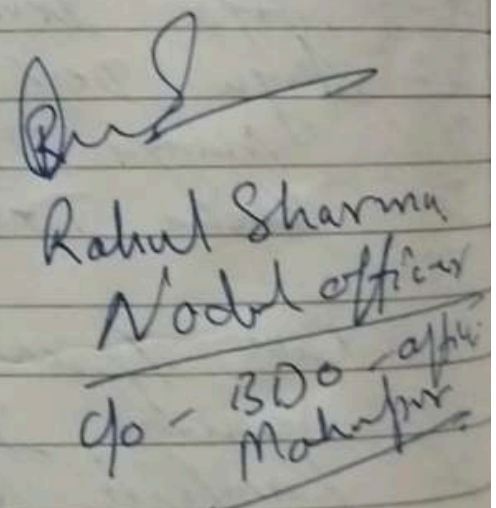 Rahul Sharma
Nodal officer
c/o - BDO - office